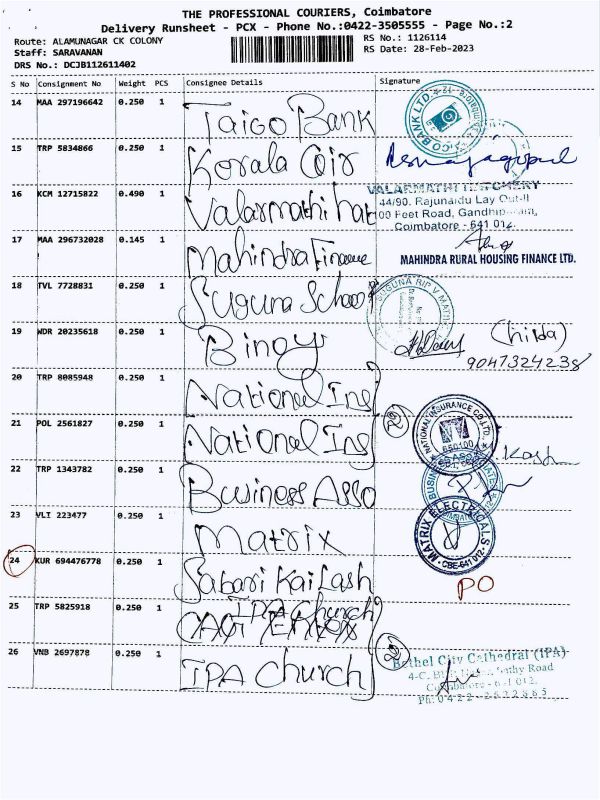 THE PROFESSIONAL COURIERS, Coimbatore
Delivery Runsheet - PCX - Phone No.:0422-3505555 - Page No.:2
Route: ALAMUNAGAR CK COLONY
Staff: SARAVANAN
DRS No.: DCJB112611402
RS No.: 1126114
RS Date: 28-Feb-2023
S No Consignment No Weight PCS Consignee Details Signature
14 MAA 297196642 0.250 1 Taico Bank
15 TRP 5834866 0.250 1 Kerala Coir
16 KCM 12715822 0.490 1 Valarmathi hat
VALARMATHI HATCHERY
44/90. Rajunaidu Lay Out-II
100 Feet Road, Gandhipuram,
Coimbatore - 641 012.
17 MAA 296732028 0.145 1 Mahindra Finance
MAHINDRA RURAL HOUSING FINANCE LTD.
18 TVL 7728831 0.250 1 Suguna School
SUGUNA RIP V MATRIC
19 WDR 20235618 0.250 1 Binoy
(hilda)
9047324238
20 TRP 8085948 0.250 1 National Ins
21 POL 2561827 0.250 1 National Ins
2
NATIONAL INSURANCE CO.LTD.
22 TRP 1343782 0.250 1 Business Asso
23 VLI 223477 0.250 1 Matrix
MATRIX ELECTRICALS
CBE-641 012.
24 KUR 694476778 0.250 1 Sabari Kailash
PO
25 TRP 5825918 0.250 1 IPA Church
26 VNB 2697878 0.250 1 IPA Church
2
Bethel City Cathedral (IPA)
Coimbatore - 641 012.